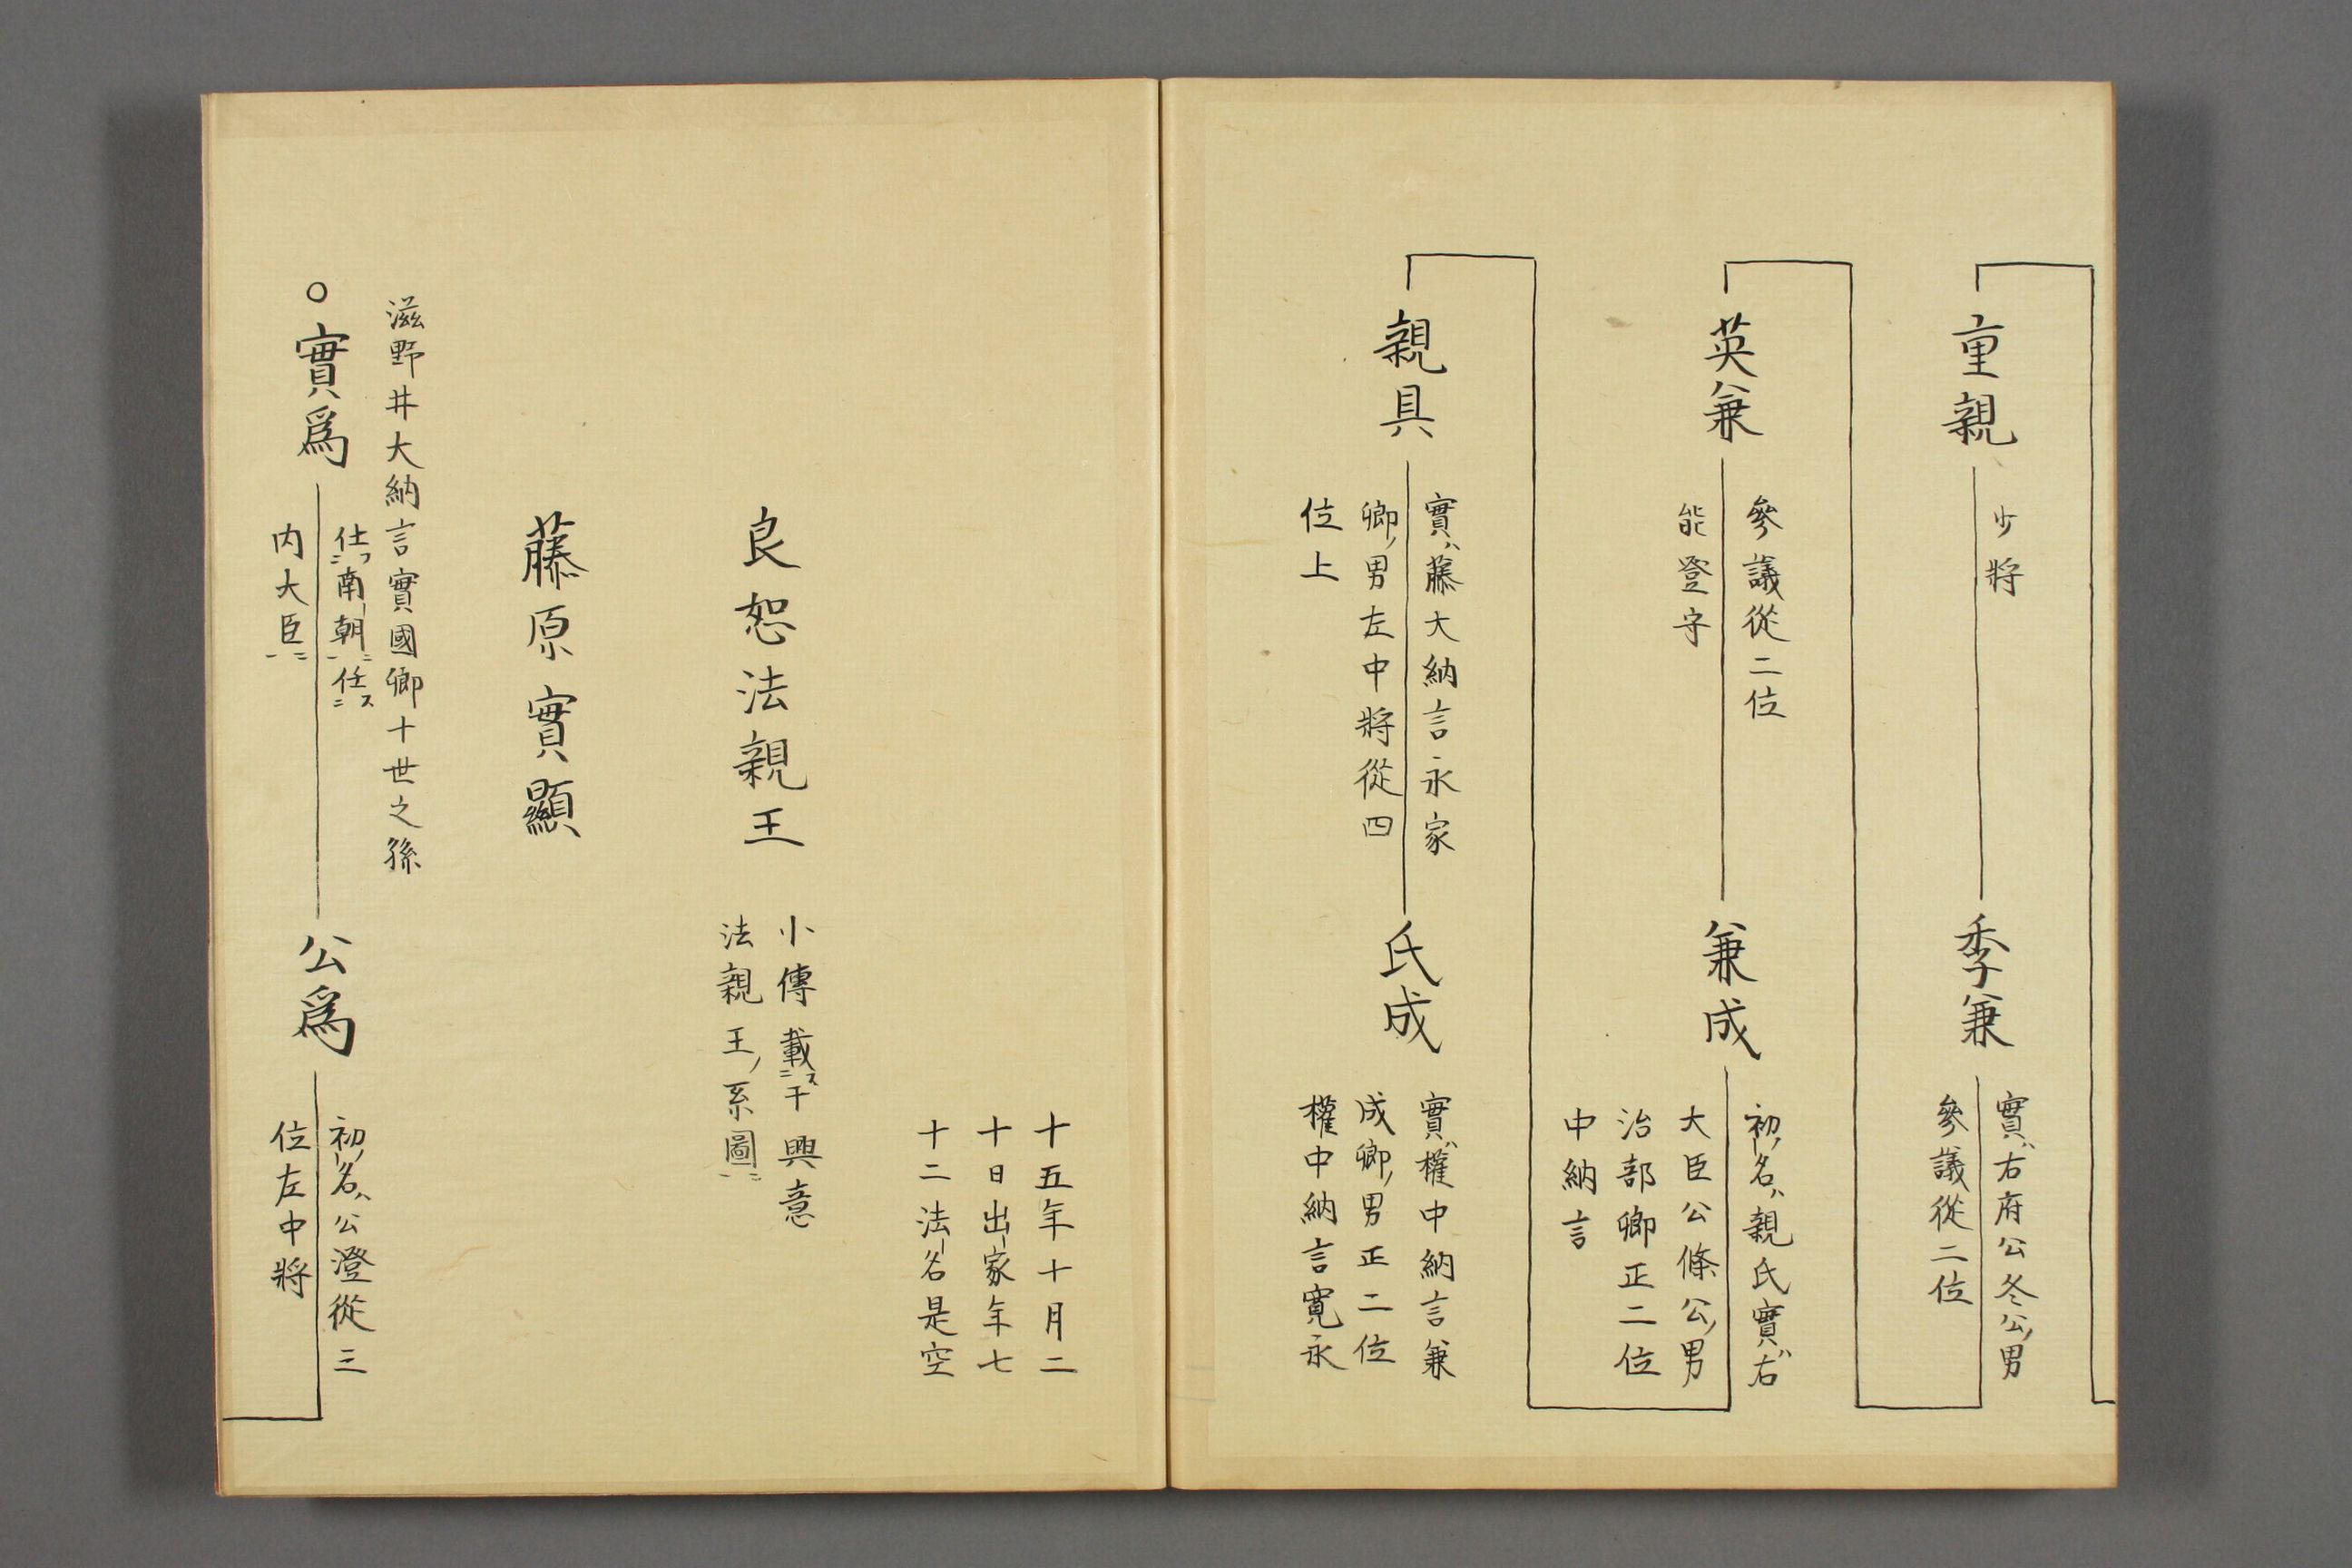 重親
少將
季兼
實ハ右府公冬公ノ男
參議從二位
英兼
參議從二位
能登守
兼成
初ノ名ハ親氏實ハ右
大臣公條公ノ男
治部卿正二位
中納言
親具
實ハ藤大納言永家
卿ノ男左中將從四
位上
氏成
實ハ權中納言兼
成卿ノ男正二位
權中納言寛永
十五年十月二
十日出家年七
十二法名是空
良恕法親王
小傳載ス二于興意
法親王ノ系圖一ニ
藤原實顯
滋野井大納言實國卿十世之孫
○實爲
仕フ二南朝一ニ任ス二
内大臣一ニ
公爲
初ノ名ハ公澄從三
位左中將